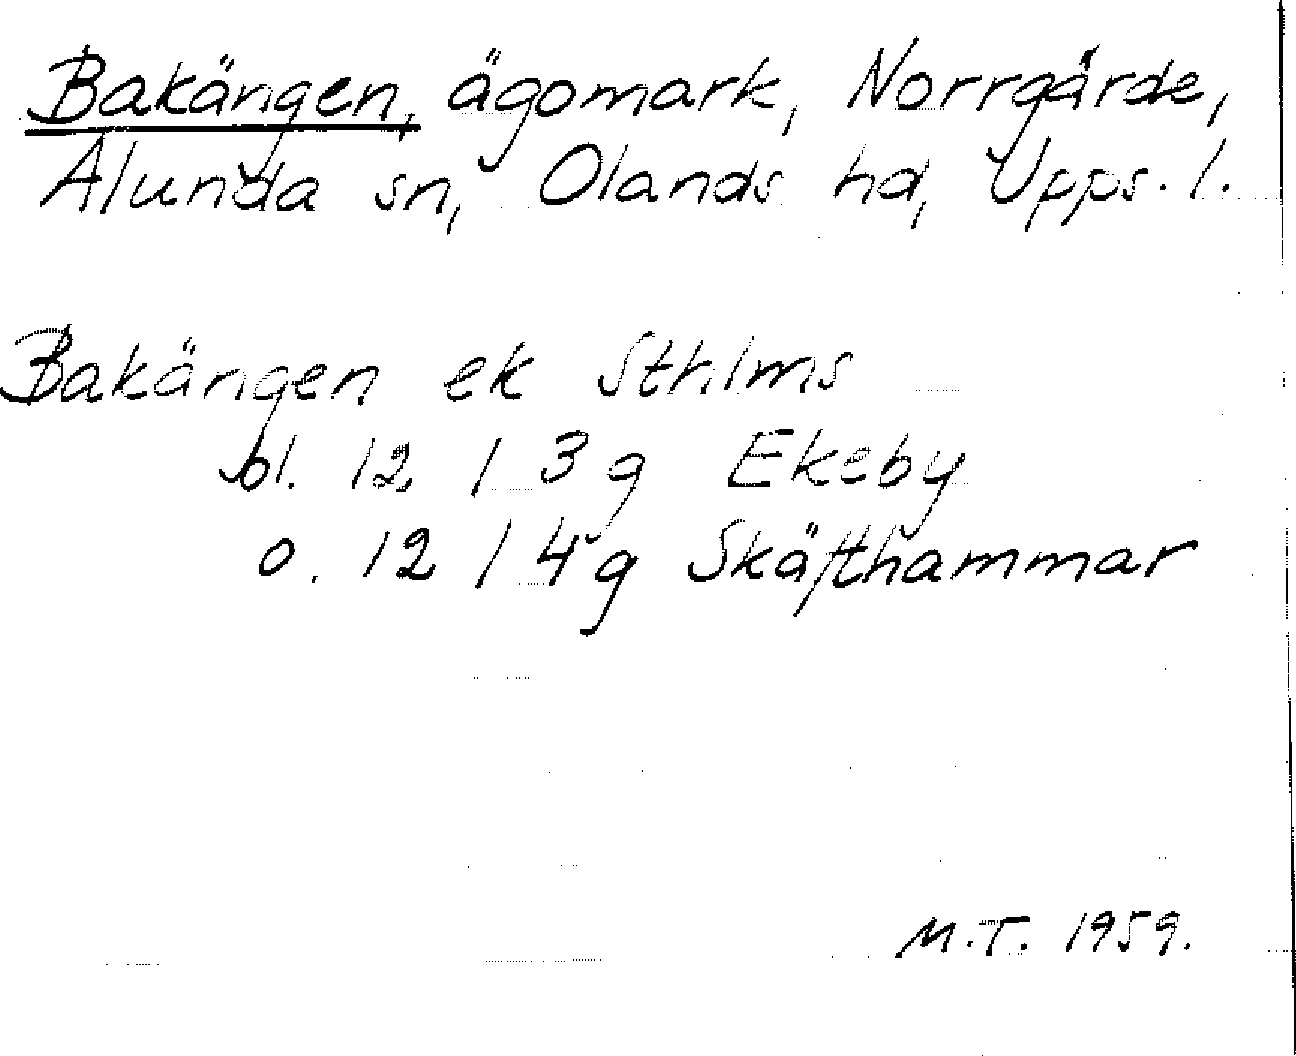 Bakängen, ägomark, Norrgärde,
Alunda sn, Olands hd, Upps. l.
Bakängen ek Sthlms
bl. 12 I 3 g Ekeby
o. 12 I 4 g Skäfthammar
M.T. 1959.